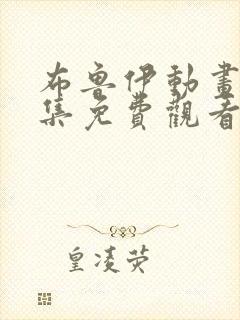 布魯伊動畫
集免費觀看
皇凌荧